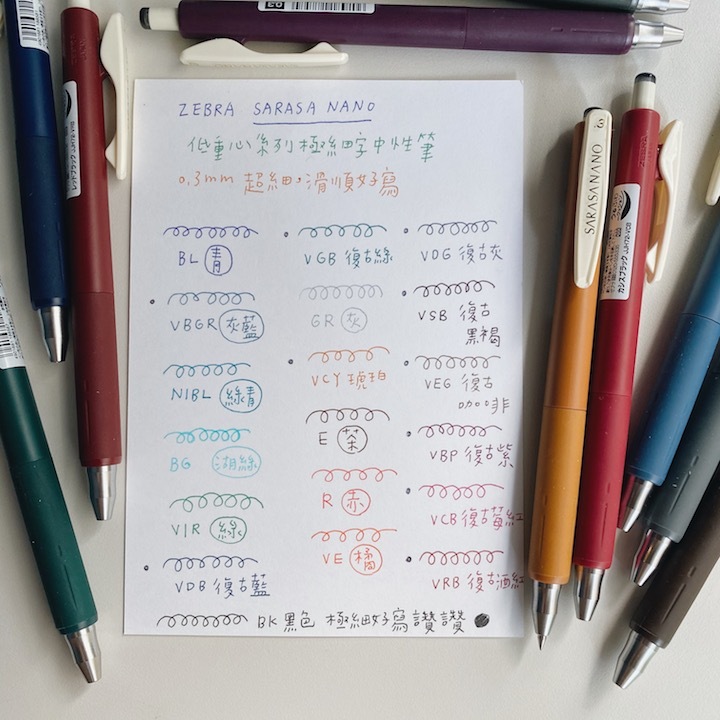 ZEBRA SARASA NANO
低重心系列極細字中性筆
0.3mm 超細,滑順好寫
BL 青
VBGR 灰藍
NIBL 綠青
BG 湖綠
VIR 綠
VDB 復古藍
VGB 復古綠
GR 灰
VCY 琥珀
E 茶
R 赤
VE 橘
VDG 復古灰
VSB 復古
黑褐
VEG 復古
咖啡
VBP 復古紫
VCB 復古莓紅
VRB 復古酒紅
BK 黑色 極細好寫讚讚
SARASA NANO
レッドブラック
カシスブラック
03